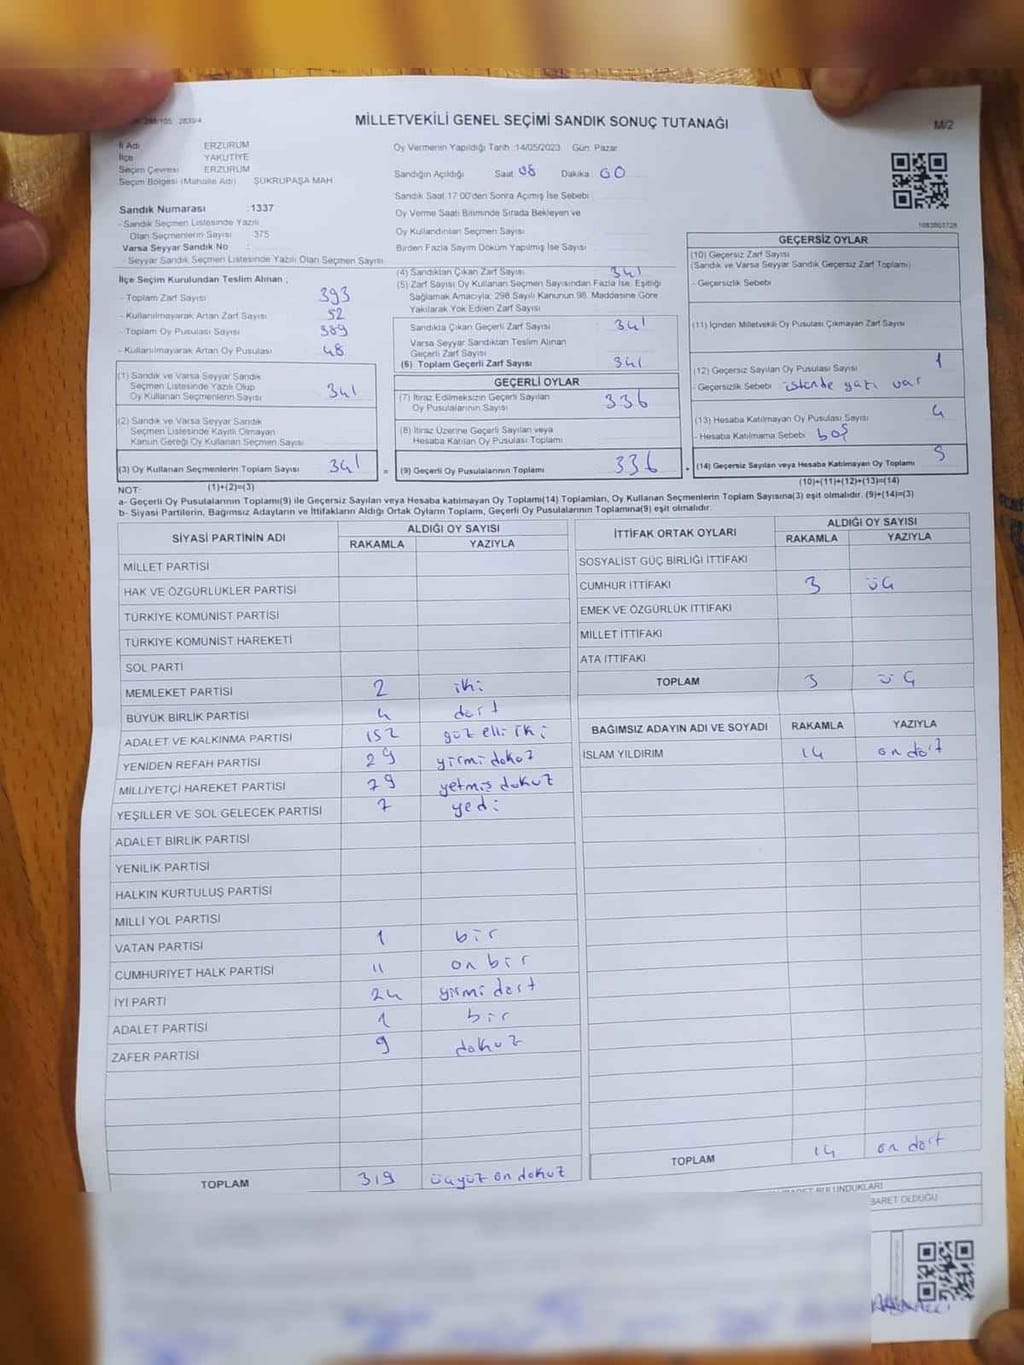 298/105 2839/4
MİLLETVEKİLİ GENEL SEÇİMİ SANDIK SONUÇ TUTANAĞI
M/2
İl Adı ERZURUM
İlçe YAKUTİYE
Seçim Çevresi ERZURUM
Seçim Bölgesi (Mahalle Adı) ŞÜKRÜPAŞA MAH.
Oy Vermenin Yapıldığı Tarih :14/05/2023 Gün: Pazar
Sandığın Açıldığı Saat 08 Dakika: 00
Sandık Saat 17:00'den Sonra Açılmış İse Sebebi
Oy Verme Saati Bitiminde Sırada Bekleyen ve
Oy Kullandırılan Seçmen Sayısı
Birden Fazla Sayım Döküm Yapılmış İse Sayısı
Sandık Numarası :1337
- Sandık Seçmen Listesinde Yazılı
Olan Seçmenlerin Sayısı : 375
Varsa Seyyar Sandık No :
- Seyyar Sandık Seçmen Listesinde Yazılı Olan Seçmen Sayısı
İlçe Seçim Kurulundan Teslim Alınan ;
- Toplam Zarf Sayısı 393
- Kullanılmayarak Artan Zarf Sayısı 52
- Toplam Oy Pusulası Sayısı 389
- Kullanılmayarak Artan Oy Pusulası 48
(1) Sandık ve Varsa Seyyar Sandık
Seçmen Listesinde Yazılı Olup
Oy Kullanan Seçmenlerin Sayısı 341
(2) Sandık ve Varsa Seyyar Sandık
Seçmen Listesinde Kayıtlı Olmayan
Kanun Gereği Oy Kullanan Seçmen Sayısı
(3) Oy Kullanan Seçmenlerin Toplam Sayısı 341
(1)+(2)=(3)
(4) Sandıktan Çıkan Zarf Sayısı 341
(5) Zarf Sayısı Oy Kullanan Seçmen Sayısından Fazla İse, Eşitliği
Sağlamak Amacıyla; 298 Sayılı Kanunun 98. Maddesine Göre
Yakılarak Yok Edilen Zarf Sayısı
Sandıkta Çıkan Geçerli Zarf Sayısı : 341
Varsa Seyyar Sandıktan Teslim Alınan
Geçerli Zarf Sayısı
(6) Toplam Geçerli Zarf Sayısı 341
GEÇERLİ OYLAR
(7) İtiraz Edilmeksizin Geçerli Sayılan
Oy Pusulalarının Sayısı 336
(8) İtiraz Üzerine Geçerli Sayılan veya
Hesaba Katılan Oy Pusulası Toplamı
= (9) Geçerli Oy Pusulalarının Toplamı 336
GEÇERSİZ OYLAR
(10) Geçersiz Zarf Sayısı
(Sandık ve Varsa Seyyar Sandık Geçersiz Zarf Toplamı)
- Geçersizlik Sebebi
(11) İçinden Milletvekili Oy Pusulası Çıkmayan Zarf Sayısı
(12) Geçersiz Sayılan Oy Pusulası Sayısı 1
- Geçersizlik Sebebi üstünde yazı var
(13) Hesaba Katılmayan Oy Pusulası Sayısı 4
- Hesaba Katılmama Sebebi boş
+ (14) Geçersiz Sayılan veya Hesaba Katılmayan Oy Toplamı 5
(10)+(11)+(12)+(13)=(14)
NOT:
a- Geçerli Oy Pusulalarının Toplamı(9) ile Geçersiz Sayılan veya Hesaba katılmayan Oy Toplamı(14) Toplamları, Oy Kullanan Seçmenlerin Toplam Sayısına(3) eşit olmalıdır. (9)+(14)=(3)
b- Siyasi Partilerin, Bağımsız Adayların ve İttifakların Aldığı Ortak Oyların Toplamı, Geçerli Oy Pusulalarının Toplamına(9) eşit olmalıdır.
SİYASİ PARTİNİN ADI
ALDIĞI OY SAYISI
RAKAMLA YAZIYLA
MİLLET PARTİSİ
HAK VE ÖZGÜRLÜKLER PARTİSİ
TÜRKİYE KOMÜNİST PARTİSİ
TÜRKİYE KOMÜNİST HAREKETİ
SOL PARTİ
MEMLEKET PARTİSİ 2 iki
BÜYÜK BİRLİK PARTİSİ 4 dört
ADALET VE KALKINMA PARTİSİ 152 yüz elli iki
YENİDEN REFAH PARTİSİ 29 yirmi dokuz
MİLLİYETÇİ HAREKET PARTİSİ 79 yetmiş dokuz
YEŞİLLER VE SOL GELECEK PARTİSİ 7 yedi
ADALET BİRLİK PARTİSİ
YENİLİK PARTİSİ
HALKIN KURTULUŞ PARTİSİ
MİLLİ YOL PARTİSİ
VATAN PARTİSİ 1 bir
CUMHURİYET HALK PARTİSİ 11 on bir
İYİ PARTİ 24 yirmi dört
ADALET PARTİSİ 1 bir
ZAFER PARTİSİ 9 dokuz
TOPLAM 319 üçyüz on dokuz
İTTİFAK ORTAK OYLARI
ALDIĞI OY SAYISI
RAKAMLA YAZIYLA
SOSYALİST GÜÇ BİRLİĞİ İTTİFAKI
CUMHUR İTTİFAKI 3 üç
EMEK VE ÖZGÜRLÜK İTTİFAKI
MİLLET İTTİFAKI
ATA İTTİFAKI
TOPLAM 3 üç
BAĞIMSIZ ADAYIN ADI VE SOYADI RAKAMLA YAZIYLA
İSLAM YILDIRIM 14 on dört
TOPLAM 14 on dört
BARET OLDUĞU